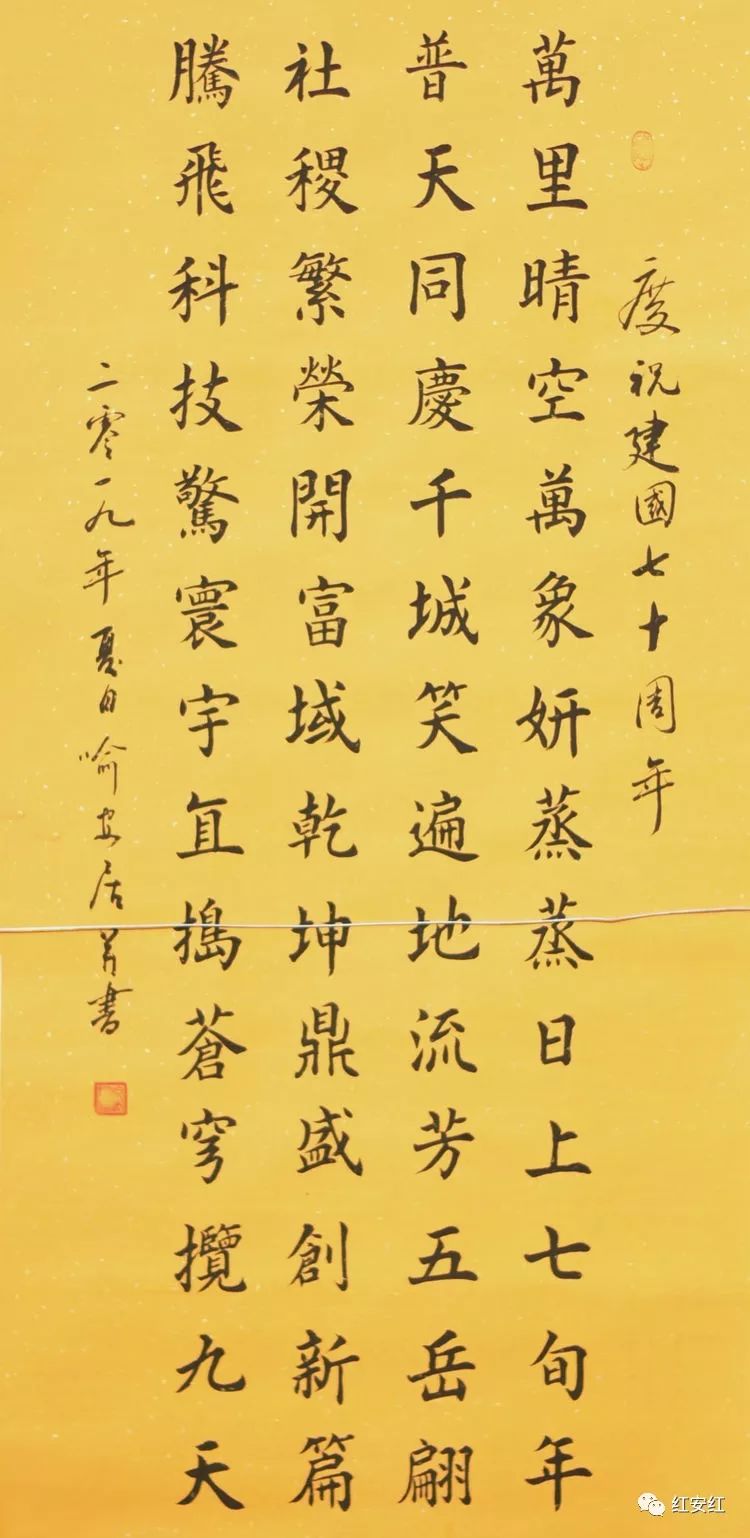 慶祝建國七十周年
萬里晴空萬象妍蒸蒸日上七旬年
普天同慶千城笑遍地流芳五岳翩
社稷繁榮開富域乾坤鼎盛創新篇
騰飛科技驚寰宇直搗蒼穹攬九天
二零一九年夏日喻安居書
红安红